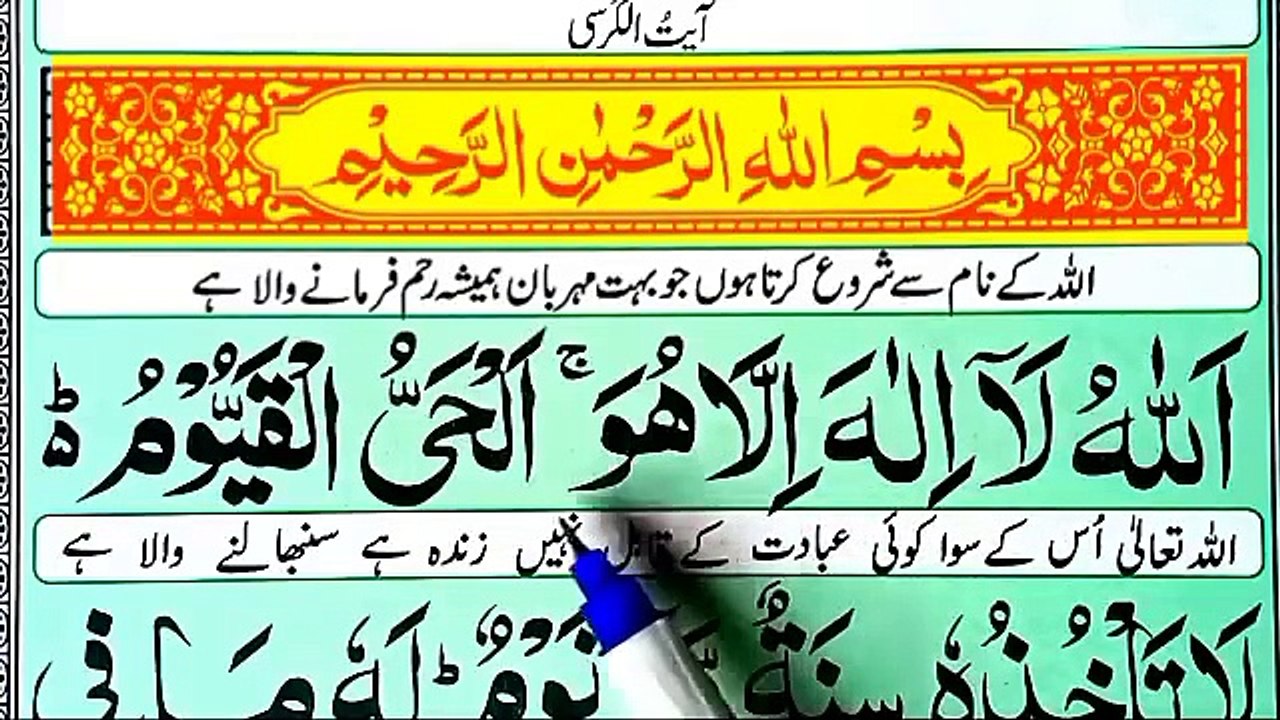 آیتُ الکُرسی
بِسْمِ اللّٰهِ الرَّحْمٰنِ الرَّحِيْمِ
اللہ کے نام سے شروع کرتا ہوں جو بہت مہربان ہمیشہ رحم فرمانے والا ہے
اَللّٰهُ لَاۤ اِلٰهَ اِلَّا هُوَ ۚ اَلْحَیُّ الْقَیُّوْمُ ۵ؕ
اللہ تعالیٰ اُس کے سوا کوئی عبادت کے قابل نہیں زندہ ہے سنبھالنے والا ہے
لَا تَاْخُذُهٗ سِنَةٌ نَوْمٌ ؕ لَهٗ مَا فِی